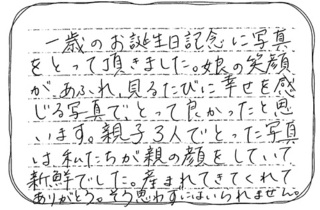 一歳のお誕生日記念に写真
をとって頂きました。娘の笑顔
があふれ、見るたびに幸せを感
じる写真で、とって良かったと思
います。親子3人でとった写真
は、私たちが親の顔をしていて
新鮮でした。産まれてきてくれて
ありがとう。そう思わずにはいられません。